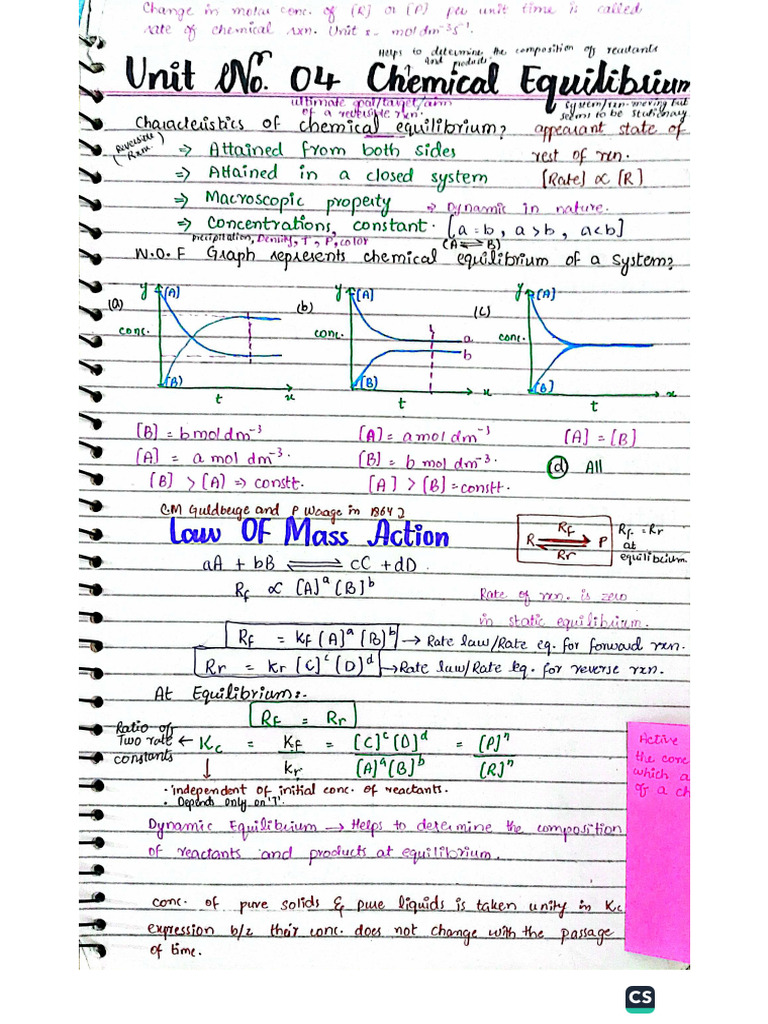 Change in molar conc. of (R) or (P) per unit time is called
rate of chemical rxn. Unit :- moldm⁻³s⁻¹.
Helps to determine the composition of reactants
and products
Unit No. 04 Chemical Equilibrium
ultimate goal/target/aim
of a reversible rxn.
system/rxn moving but
seems to be stationary
Characteristics of chemical equilibrium? appearant state of
rest of rxn.
(Reversible Rxn)
⇒ Attained from both sides
⇒ Attained in a closed system [Rate] ∝ [R]
⇒ Macroscopic property ⇒ Dynamic in nature.
⇒ Concentrations, constant. [a=b, a>b, a<b]
precipitation, Density, T, P, color (A⇌B)
N.O.F Graph represents chemical equilibrium of a system?
(a) y [A] conc. [B] t x
(b) y [A] conc. [B] a b t x
(c) y [A] conc. [B] t x
[B] = b mol dm⁻³ [A] = a mol dm⁻³ [A] = [B]
[A] = a mol dm⁻³. [B] = b mol dm⁻³. (d) All
[B] > [A] ⇒ constt. [A] > [B] = constt.
C.M Guldberge and P Waage in 1864
Law Of Mass Action
R ⇌ P
Rf
Rr
Rf = Rr
at
equilibrium
aA + bB ⇌ cC + dD.
Rf ∝ [A]ᵃ[B]ᵇ
Rate of rxn. is zero
in static equilibrium.
Rf = Kf [A]ᵃ [B]ᵇ → Rate law/Rate eq. for forward rxn.
Rr = Kr [C]ᶜ [D]ᵈ → Rate law/Rate eq. for reverse rxn.
At Equilibrium:-
Rf = Rr
Ratio of
Two rate
constants
← Kc = Kf/kr = [C]ᶜ[D]ᵈ/[A]ᵃ[B]ᵇ = [P]ⁿ/[R]ⁿ
· independent of initial conc. of reactants.
· Depends only on 'T'.
Active
the conc
which a
of a ch
Dynamic Equilibrium → Helps to determine the composition
of reactants and products at equilibrium.
conc. of pure solids & pure liquids is taken unity in Kc
expression b/z their conc. does not change with the passage
of time.
CS